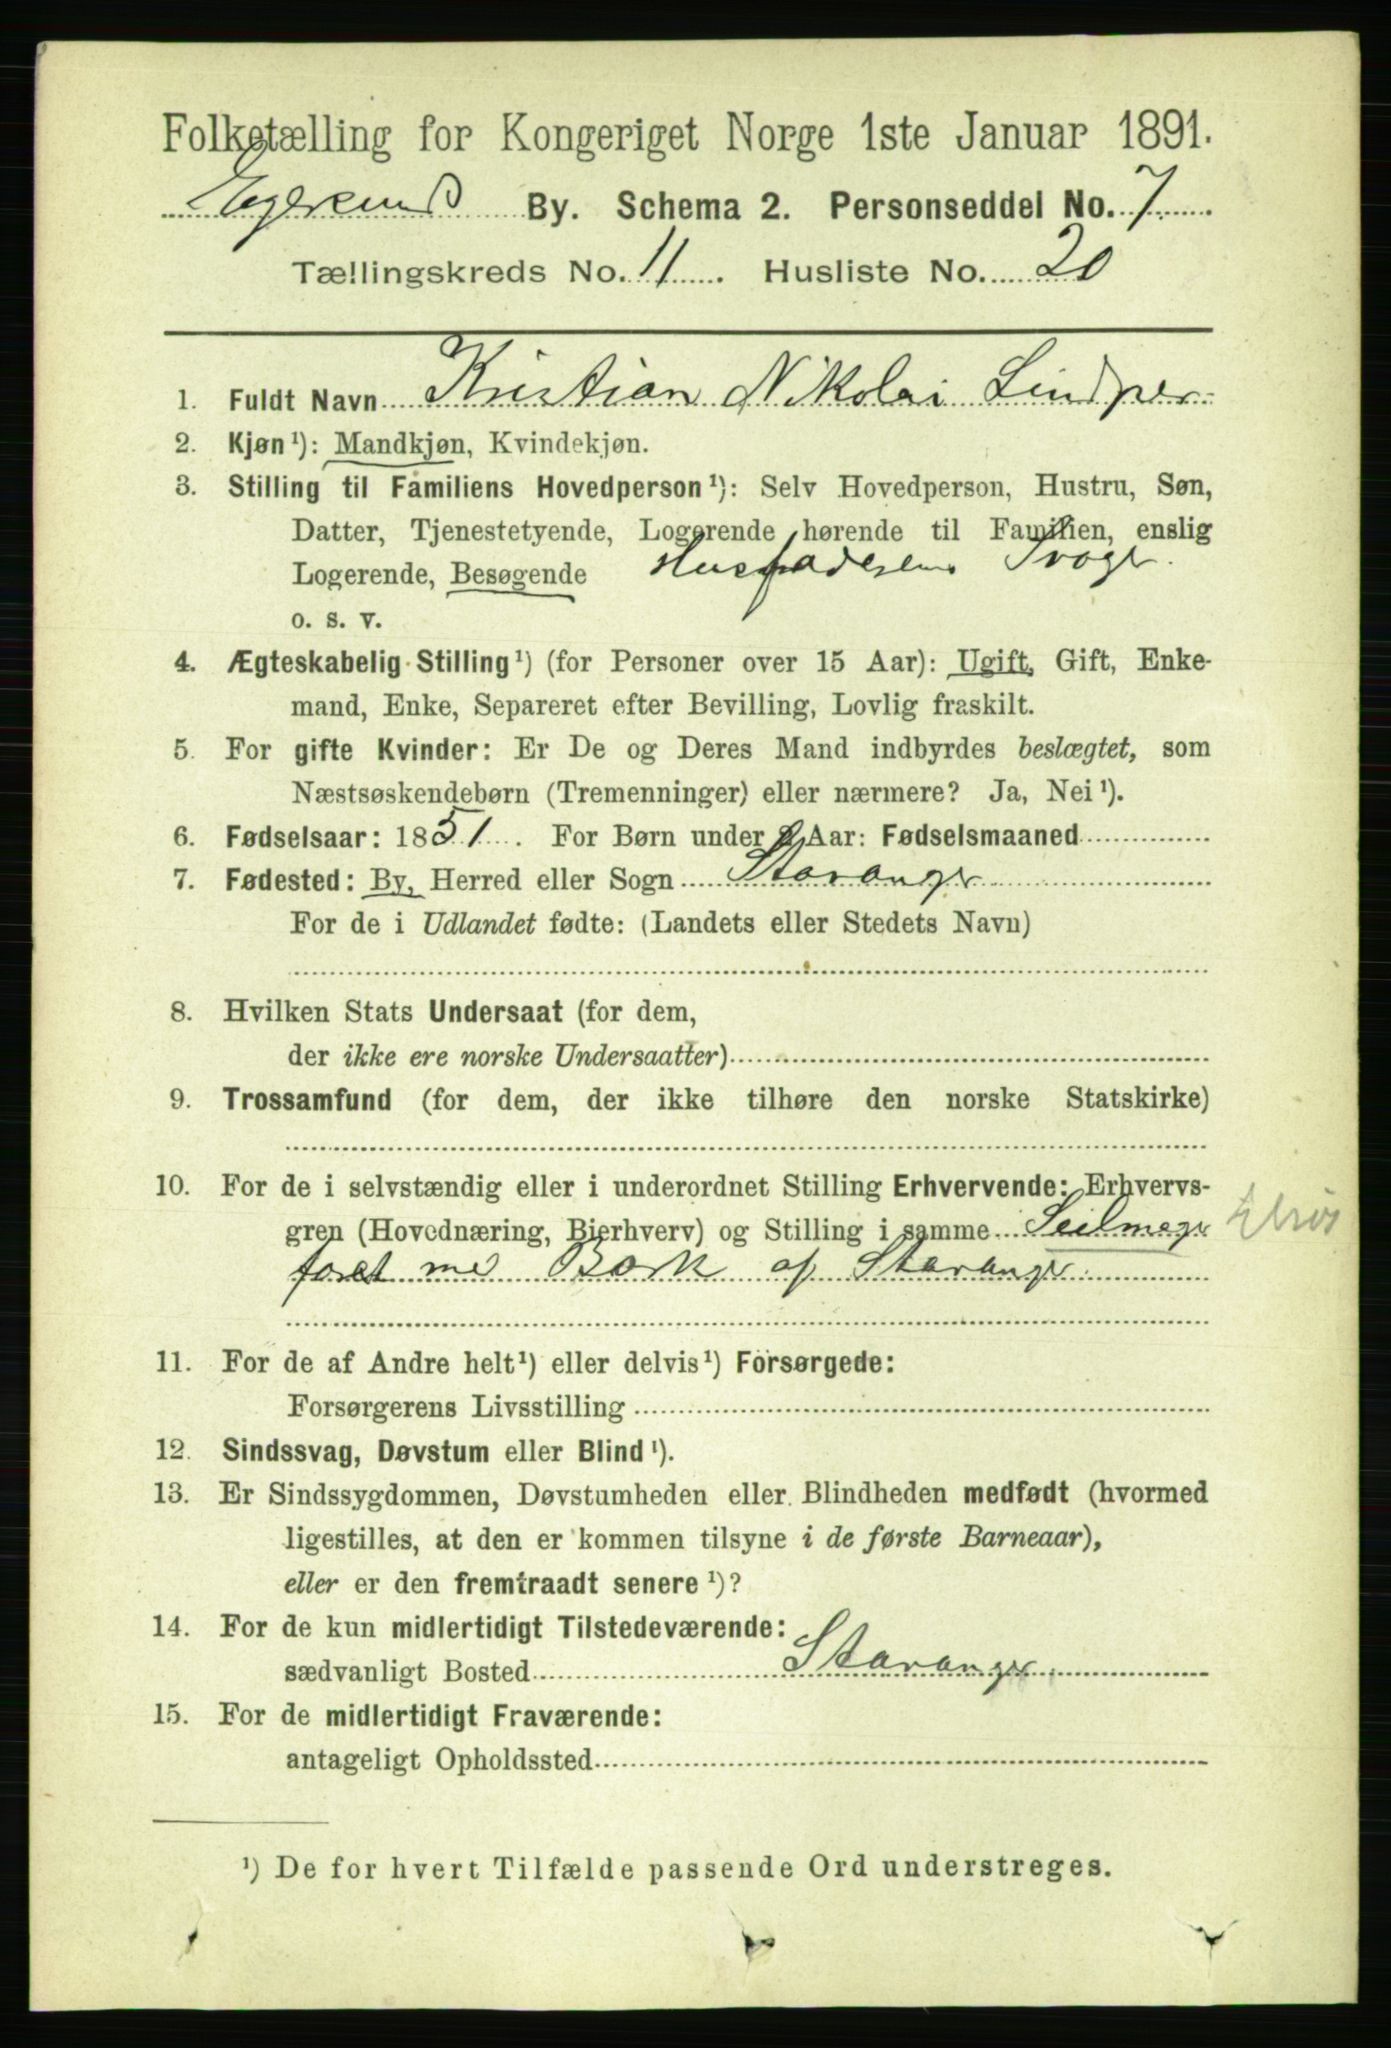 Folketælling for Kongeriget Norge 1ste Januar 1891.
Egersund By. Schema 2. Personseddel No. 7
Tællingskreds No. 11. Husliste No. 20
1. Fuldt Navn Kristian Nikolai
2. Kjøn¹): Mandkjøn, Kvindekjøn.
3. Stilling til Familiens Hovedperson¹): Selv Hovedperson, Hustru, Søn,
Datter, Tjenestetyende, Logerende hørende til Familien, enslig
Logerende, Besøgende Husfaderens Svoger
o. s. v.
4. Ægteskabelig Stilling¹) (for Personer over 15 Aar): Ugift, Gift, Enke-
mand, Enke, Separeret efter Bevilling, Lovlig fraskilt.
5. For gifte Kvinder: Er De og Deres Mand indbyrdes beslægtet, som
Næstsøskendebørn (Tremenninger) eller nærmere? Ja, Nei¹).
6. Fødselsaar: 1851. For Børn under 2 Aar: Fødselsmaaned
7. Fødested: By, Herred eller Sogn Stavanger
For de i Udlandet fødte: (Landets eller Stedets Navn)
8. Hvilken Stats Undersaat (for dem,
der ikke ere norske Undersaatter)
9. Trossamfund (for dem, der ikke tilhøre den norske Statskirke)
10. For de i selvstændig eller i underordnet Stilling Erhvervende: Erhvervs-
gren (Hovednæring, Bierhverv) og Stilling i samme Seilmager
med Bark af Stavanger
11. For de af Andre helt¹) eller delvis¹) Forsørgede:
Forsørgerens Livsstilling
12. Sindssvag, Døvstum eller Blind¹).
13. Er Sindssygdommen, Døvstumheden eller Blindheden medfødt (hvormed
ligestilles, at den er kommen tilsyne i de første Barneaar),
eller er den fremtraadt senere¹)?
14. For de kun midlertidigt Tilstedeværende:
sædvanligt Bosted Stavanger
15. For de midlertidigt Fraværende:
antageligt Opholdssted
¹) De for hvert Tilfælde passende Ord understreges.